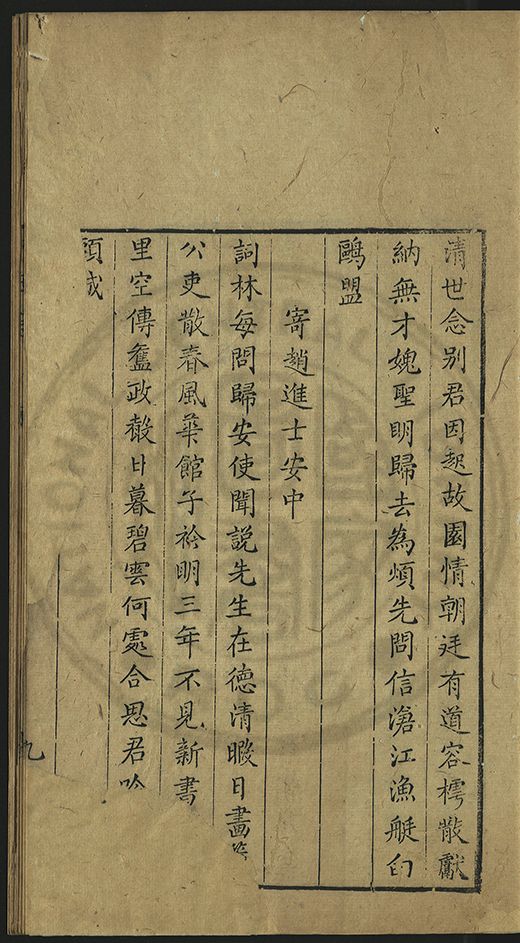 清世念別君因起故園情朝廷有道容樗散獻
納無才媿聖明歸去為煩先問信滄江漁艇白
鷗盟
寄趙進士安中
詞林每問歸安使聞說先生在德清暇日畫
公吏散春風華館子衿明三年不見新書
里空傳舊政聲日暮碧雲何處合思君吟
頭城
九